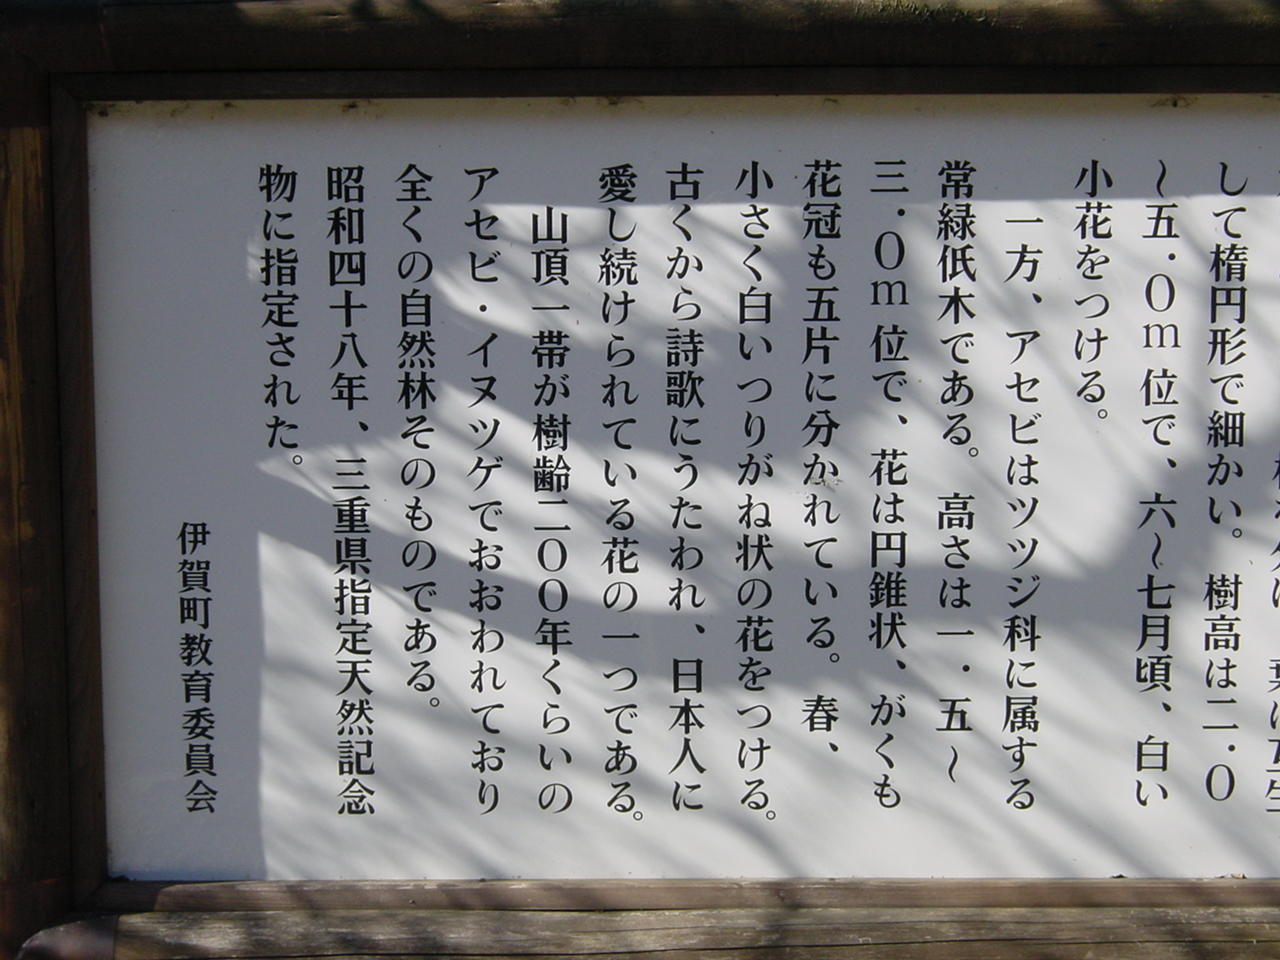 して楕円形で細かい。樹高は二・〇
〜五・〇m位で、六〜七月頃、白い
小花をつける。
一方、アセビはツツジ科に属する
常緑低木である。高さは一・五〜
三・〇m位で、花は円錐状、がくも
花冠も五片に分かれている。春、
小さく白いつりがね状の花をつける。
古くから詩歌にうたわれ、日本人に
愛し続けられている花の一つである。
山頂一帯が樹齢二〇〇年くらいの
アセビ・イヌツゲでおおわれており
全くの自然林そのものである。
昭和四十八年、三重県指定天然記念
物に指定された。
伊賀町教育委員会